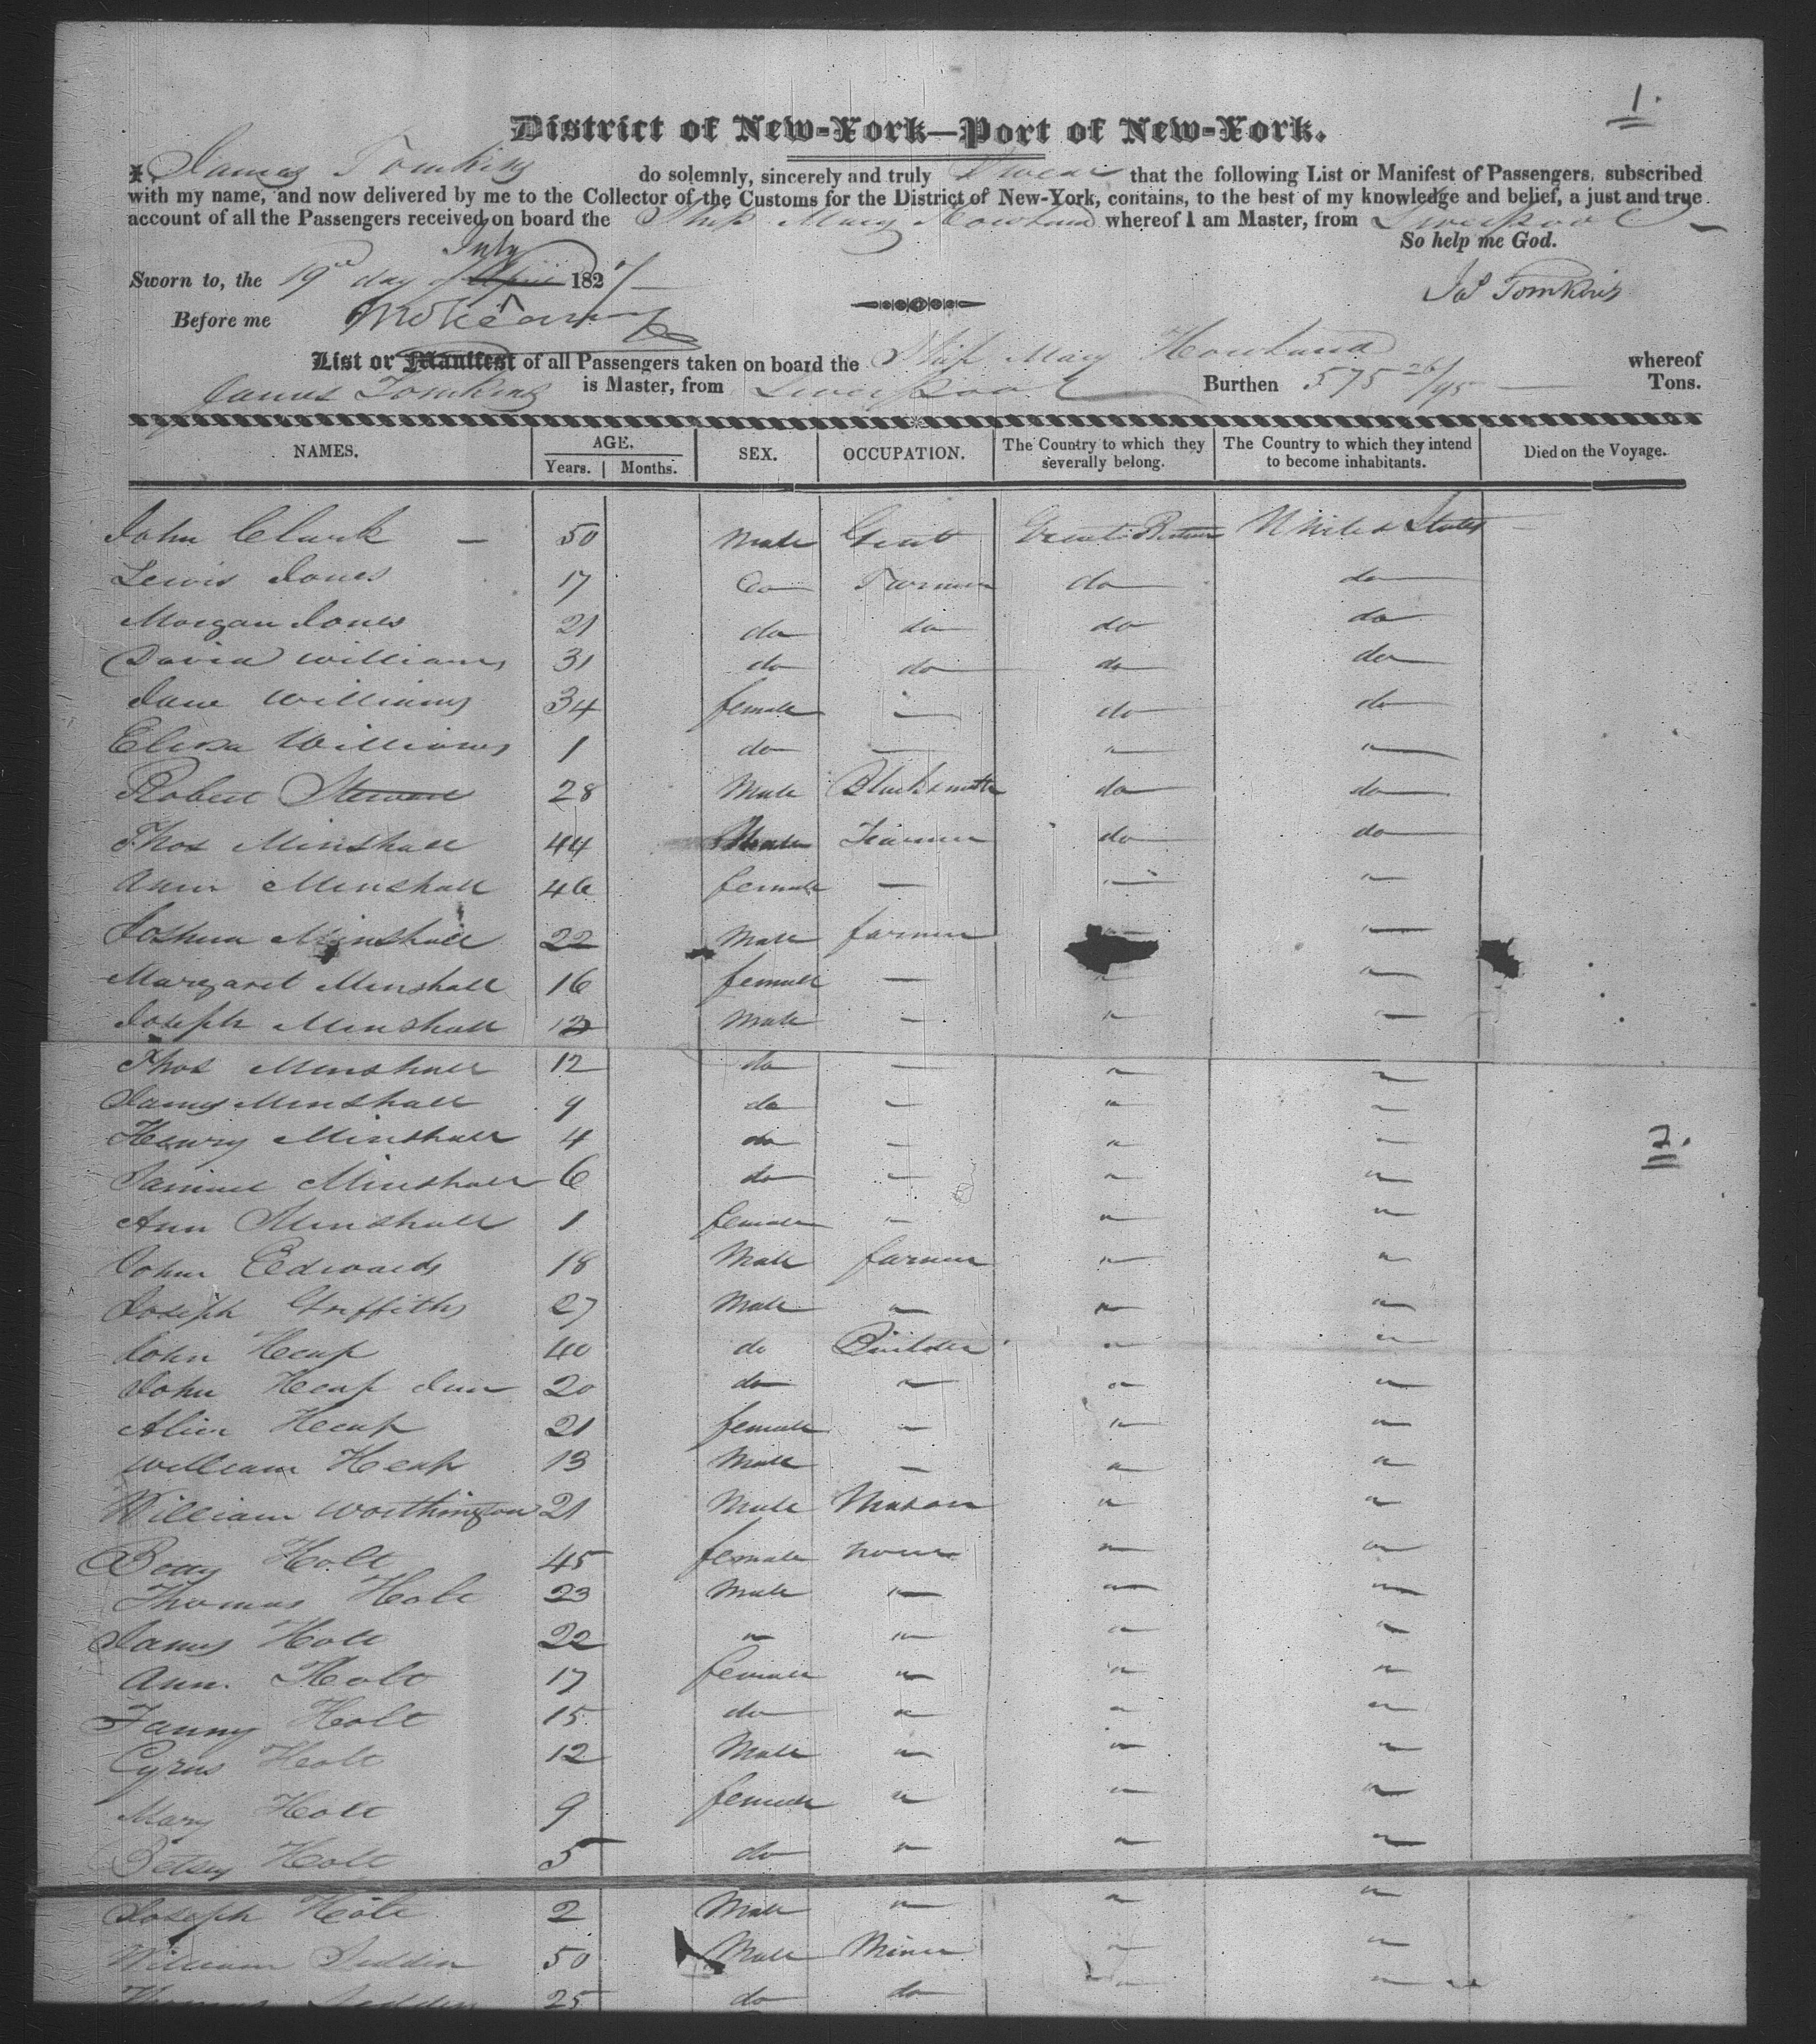 1.
District of New-York—Port of New-York.
I, James Tomkins do solemnly, sincerely and truly Swear that the following List or Manifest of Passengers, subscribed
with my name, and now delivered by me to the Collector of the Customs for the District of New-York, contains, to the best of my knowledge and belief, a just and true
account of all the Passengers received on board the Ship Mary Howland whereof I am Master, from Liverpool
So help me God.
July
Sworn to, the 19th day of April 1827
Jas Tomkins
Before me
List or Manifest of all Passengers taken on board the Ship Mary Howland whereof
James Tomkins is Master, from Liverpool Burthen 575 26/95 Tons.
NAMES. AGE. Years. Months. SEX. OCCUPATION. The Country to which they severally belong. The Country to which they intend to become inhabitants. Died on the Voyage.
John Clark — 50 Male Gent Great Britain United States —
Lewis Jones 17 do Farmer do do
Morgan Jones 21 do do do do
David Williams 31 do do do do
Jane Williams 34 female — do do
Eliza Williams 1 do — " "
Robert Stewart 28 Male Blacksmith do do
Thos Minshall 44 Male Farmer do do
Ann Minshall 46 female — " "
Joshua Minshall 22 Male farmer " "
Margaret Minshall 16 female — " "
Joseph Minshall Male — " "
Thos Minshall 12 do — " "
James Minshall 9 do — " "
Henry Minshall 4 do — " "
2.
Samuel Minshall 6 do — " "
Ann Minshall 1 female " " "
John Edwards 18 Male farmer " "
Joseph Griffiths 27 Male " " "
John Heap 40 do Builder " "
John Heap Junr 20 do " " "
Alice Heap 21 female — " "
William Heap 13 Male — " "
William Worthington 21 Male Mason " "
Betty Holt 45 female none " "
Thomas Holt 23 Male " " "
James Holt 22 " " " "
Ann Holt 17 female " " "
Fanny Holt 15 do " " "
Cyrus Holt 12 Male " " "
Mary Holt 9 female " " "
Betsey Holt 5 do " " "
Joseph Holt 2 Male " " "
William Seddon 50 Male Miner " "
Thomas Seddon 25 do do " "